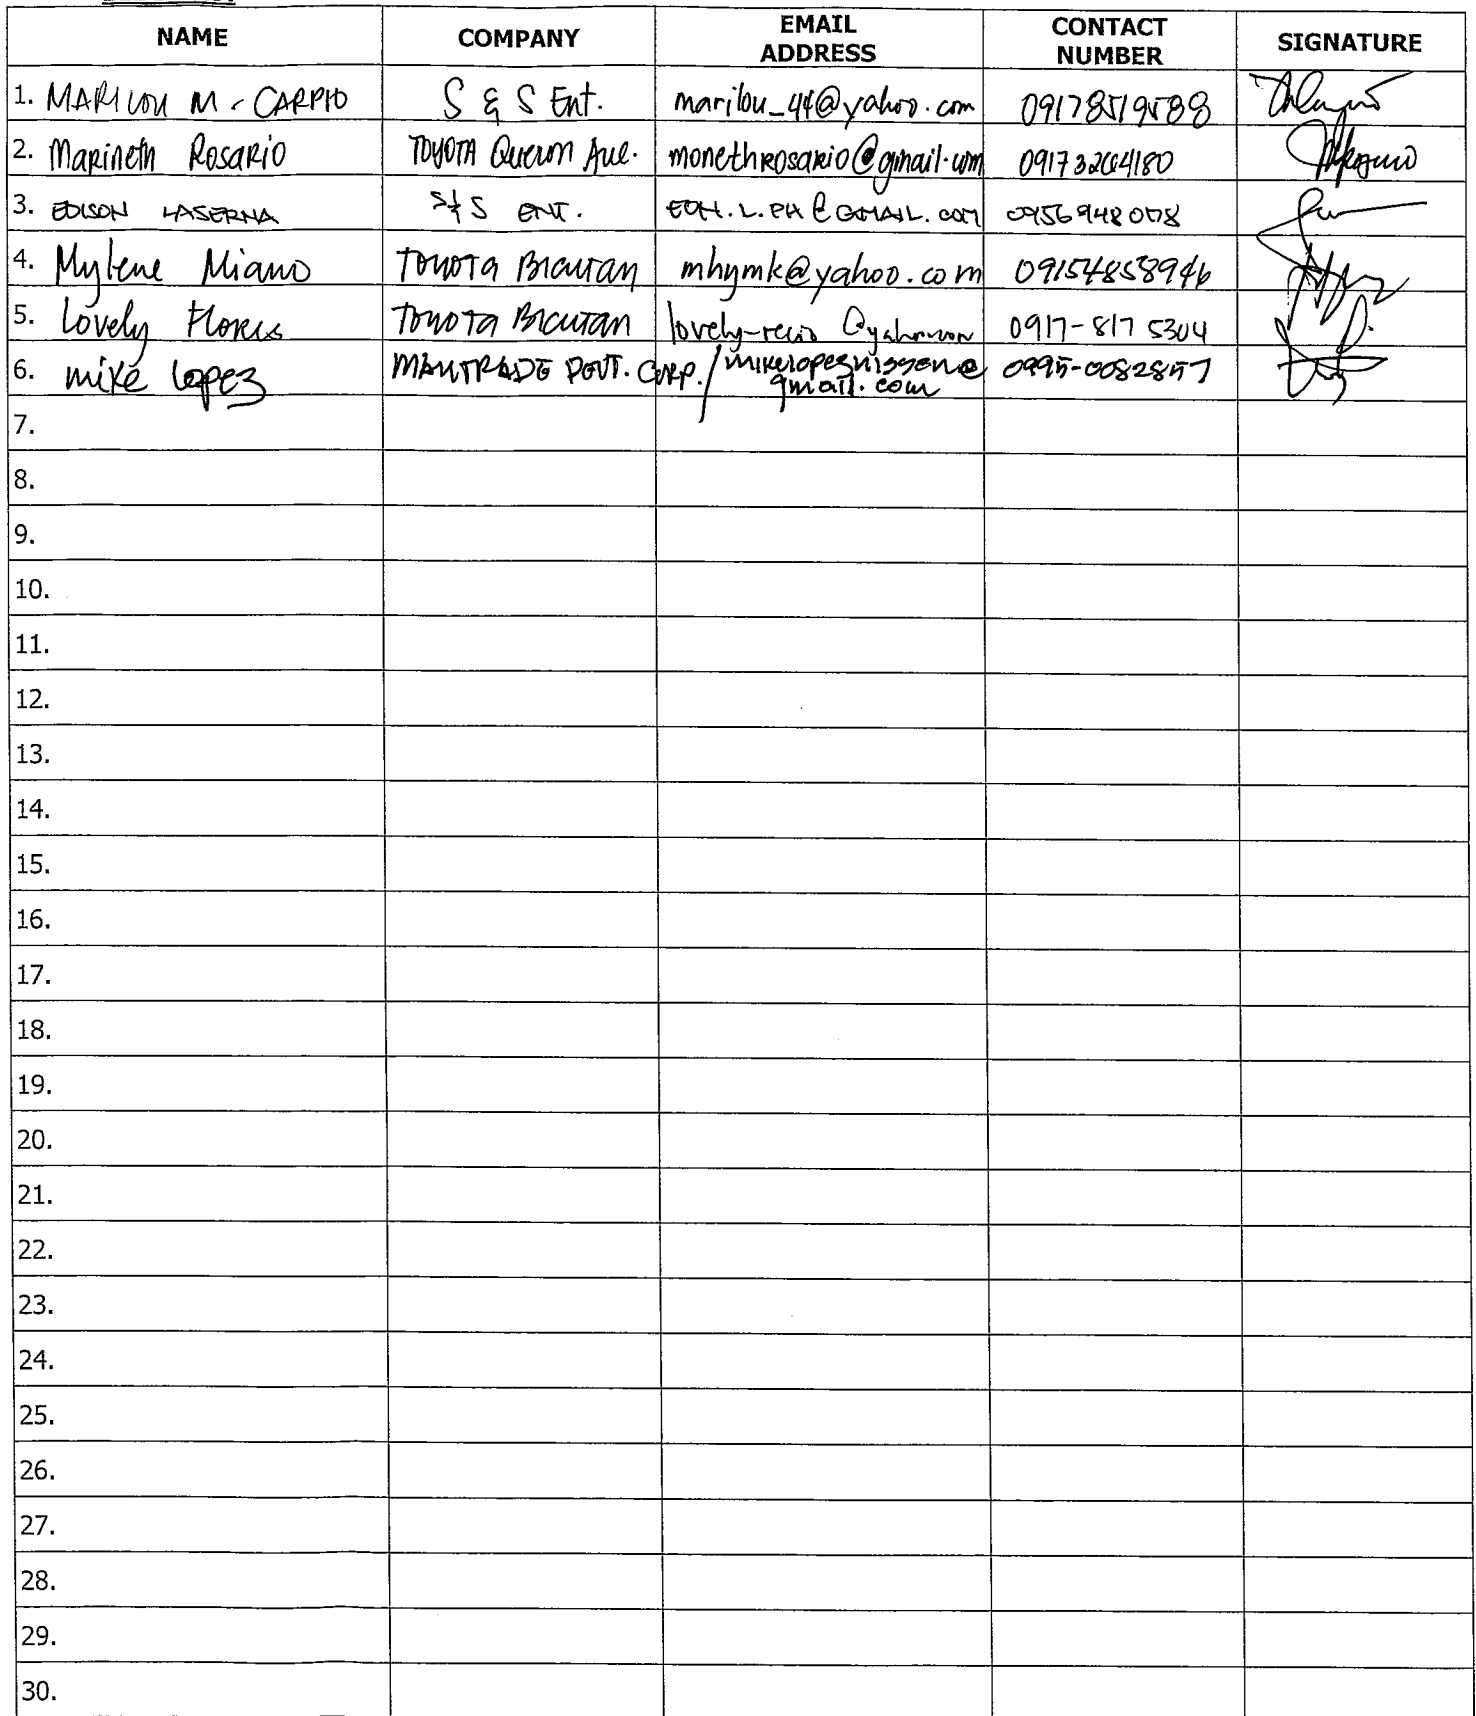 NAME COMPANY EMAIL ADDRESS CONTACT NUMBER SIGNATURE
1. MARILOU M. CARPIO S & S Ent. marilou_44@yahoo.com 09178519588
2. Marineth Rosario TOYOTA Quezon Ave. monethrosario@gmail.com 09173264180
3. EDISON LASERNA S&S ENT. @GMAIL.COM
4. Mylene Miano TOYOTA BICUTAN mhymk@yahoo.com 09154858946
5. Lovely Flores TOYOTA BICUTAN 0917-817 5304
6. mike lopez MANTRADE DEVT. CORP. / mikelopeznissan@
gmail.com 0995-0082857
7.
8.
9.
10.
11.
12.
13.
14.
15.
16.
17.
18.
19.
20.
21.
22.
23.
24.
25.
26.
27.
28.
29.
30.